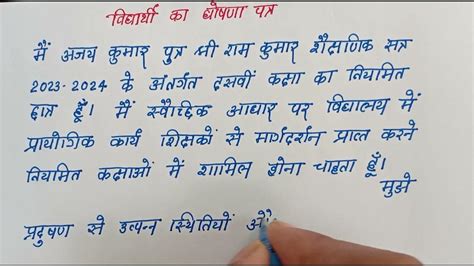 विद्यार्थी का घोषणा पत्र
मैं अजय कुमार पुत्र श्री राम कुमार शैक्षणिक सत्र
2023-2024 के अंतर्गत दसवीं कक्षा का नियमित
छात्र हूँ। मैं स्वैच्छिक आधार पर विद्यालय में
प्रायोगिक कार्य शिक्षकों से मार्गदर्शन प्राप्त करने
नियमित कक्षाओं में शामिल होना चाहता हूँ।
मुझे
प्रदुषण से उत्पन स्थितियों औ